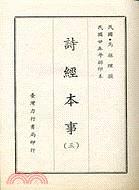 民國・馬振理撰
民國廿五年鉛印本
詩經本事
(三)
臺灣力行書局印行